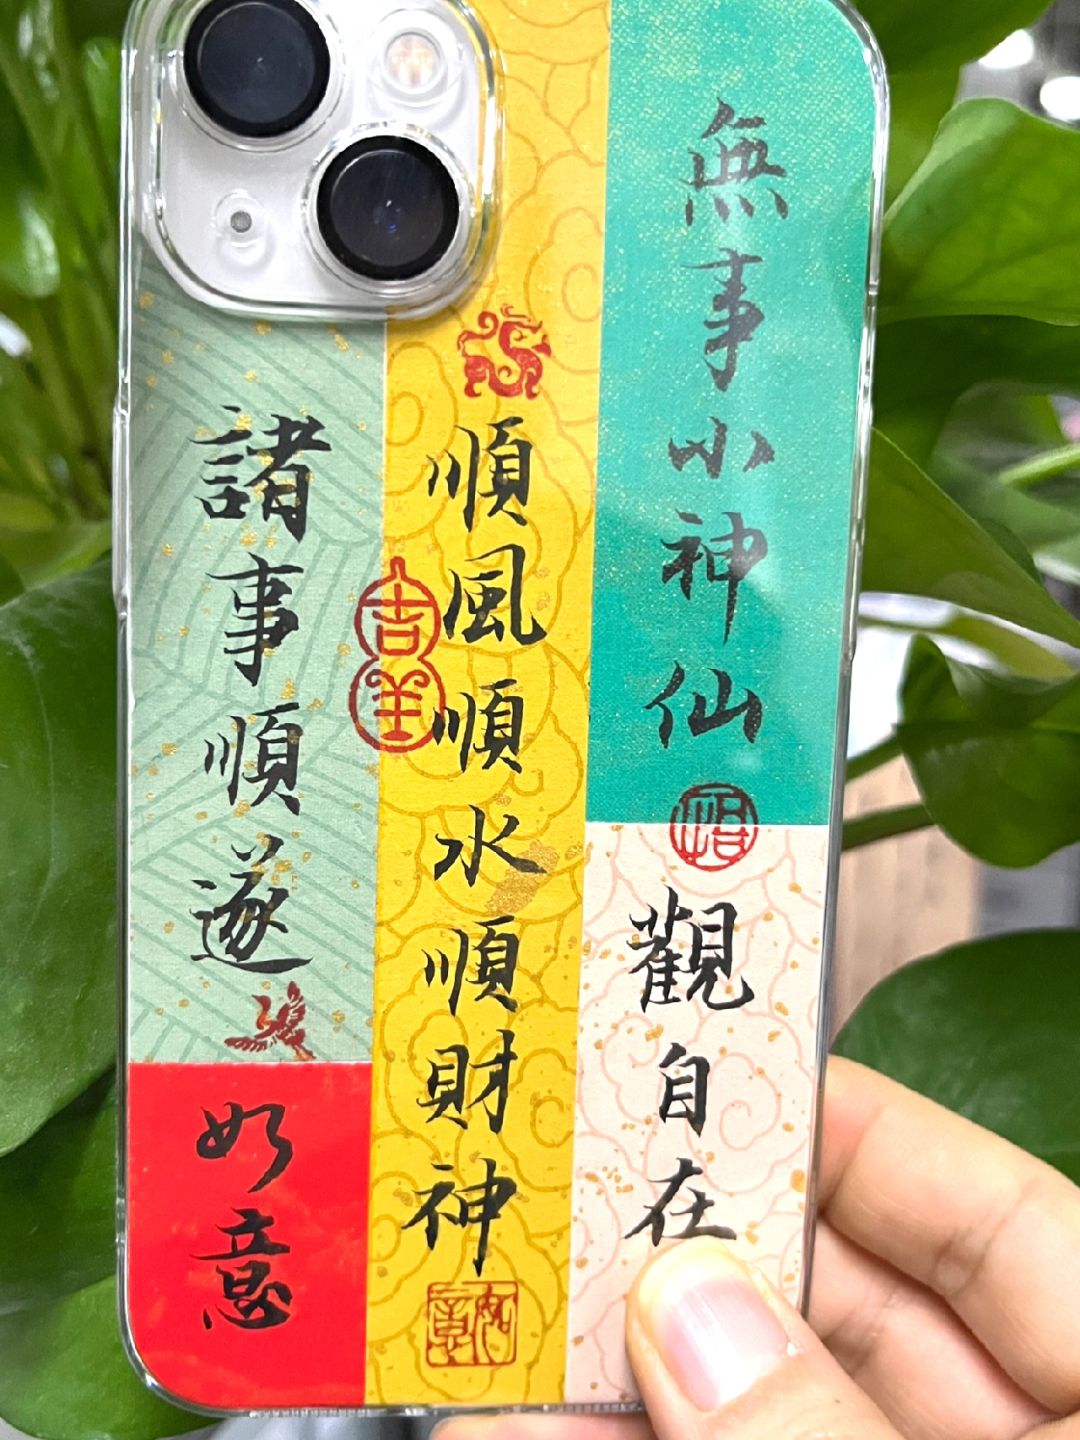 無事小神仙
觀自在
順風順水順財神
如意
吉羊
諸事順遂
如意